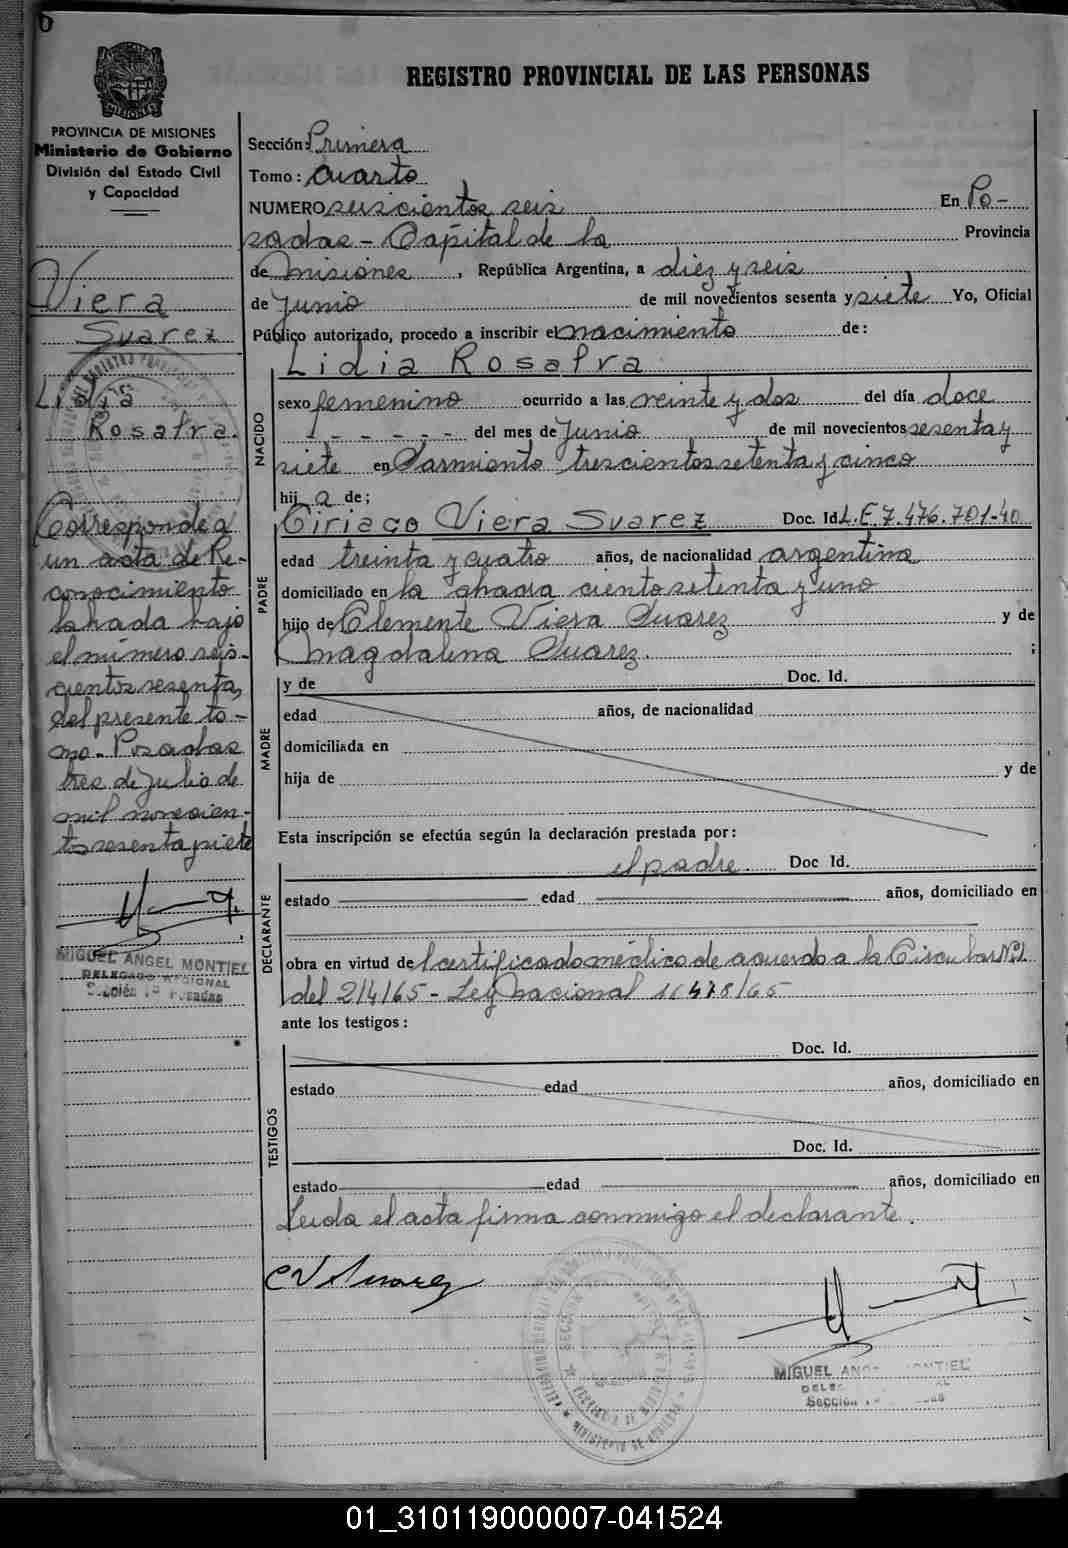 REGISTRO PROVINCIAL DE LAS PERSONAS
PROVINCIA DE MISIONES
Ministerio de Gobierno
División del Estado Civil
y Capacidad
Viera
Suarez
Lidia
Rosalra.
Corresponde a
un acta de Re-
conocimiento
labrada bajo
el número seis-
cientos sesenta,
del presente to-
mo. Posadas
tres de julio de
mil novecien-
tos sesenta y siete
MIGUEL ANGEL MONTIEL
DELEGADO REGIONAL
Sección 1ª Posadas
Sección: Primera
Tomo: Cuarto
NUMERO seiscientos seis En Po-
sadas - Capital de la Provincia
de Misiones, República Argentina, a diez y seis
de Junio de mil novecientos sesenta y siete Yo, Oficial
Público autorizado, procedo a inscribir el nacimiento de:
Lidia Rosalra
NACIDO
sexo femenino ocurrido a las veinte y dos del día doce
- - - - - - del mes de Junio de mil novecientos sesenta y
siete en Sarmiento trescientos setenta y cinco
hij a de;
PADRE
Ciriaco Viera Suarez Doc. Id. L.E 7.476.701-40
edad treinta y cuatro años, de nacionalidad argentina
domiciliado en la chacra ciento setenta y uno
hijo de Clemente Viera Suarez y de
Magdalena Suarez. ;
MADRE
y de Doc. Id.
edad años, de nacionalidad
domiciliada en
hija de y de
Esta inscripción se efectúa según la declaración prestada por:
DECLARANTE
el padre. Doc Id.
estado edad años, domiciliado en
obra en virtud de l certificado médico de acuerdo a la Circular Nº 2
del 2/4/65 - Ley Nacional 16478/65
ante los testigos:
TESTIGOS
Doc. Id.
estado edad años, domiciliado en
Doc. Id.
estado edad años, domiciliado en
Leida el acta firma conmigo el declarante.
C V Suarez
MIGUEL ANG MONTIEL
DELE AL
Sección
01_310119000007-041524